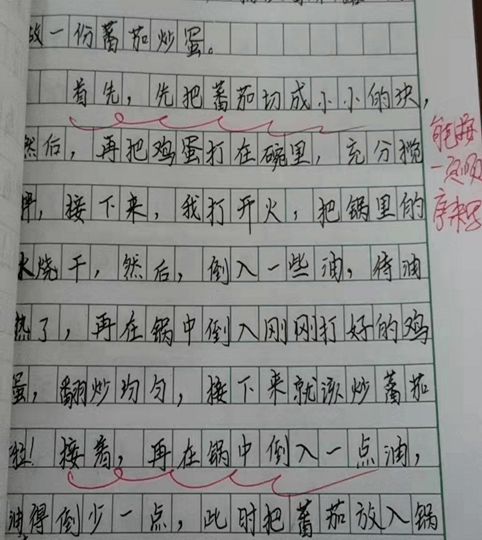 做一份蕃茄炒蛋。
首先，先把蕃茄切成小小的块，
然后，再把鸡蛋打在碗里，充分搅
拌，接下来，我打开火，把锅里的
水烧干，然后，倒入一些油，待油
热了，再在锅中倒入刚刚打好的鸡
蛋，翻炒均匀，接下来就该炒蕃茄
啦！接着，再在锅中倒入一点油，
油得倒少一点，此时把蕃茄放入锅
能按
一定顺
序来写